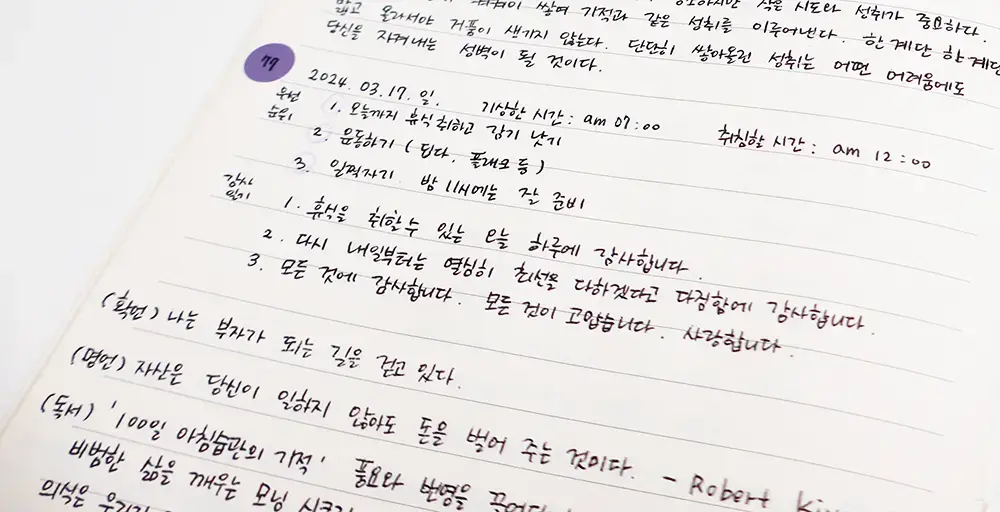 쌓여 기적과 같은 성취를 이루어낸다. 한 계단 한 계단
밟고 올라서야 거품이 생기지 않는다. 단단히 쌓아올린 성취는 어떤 어려움에도
당신을 지켜내는 성벽이 될 것이다.
77
2024. 03. 17. 일. 기상한 시간 : am 07:00 취침할 시간 : am 12:00
우선
순위
1. 오늘까지 휴식 취하고 감기 낫기
2. 운동하기 ( 플랭크 등 )
3. 일찍자기. 밤 11시에는 잘 준비
감사
일기
1. 휴식을 취할 수 있는 오늘 하루에 감사합니다.
2. 다시 내일부터는 열심히 최선을 다하겠다고 다짐함에 감사합니다.
3. 모든 것에 감사합니다. 모든 것이 고맙습니다. 사랑합니다.
(확언) 나는 부자가 되는 길을 걷고 있다.
(명언) 자산은 당신이 일하지 않아도 돈을 벌어 주는 것이다. - Robert
(독서) '100일 아침습관의 기적' 풍요와 번영을
비범한 삶을 깨우는 모닝
의식은